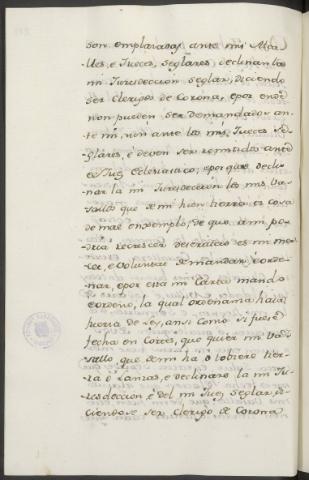 son emplazados ante mi Alca
lles, e Jueces, seglares, declinan las
mi Jurisdeccion seglar, diciendo
ser Clerigos de Corona, e por ende
non pueden ser demandados an-
te mi, nin ante los mis Jueces se-
glares, e deven ser remitidos ante
e Juez Eclesiastico; e porque decli-
nar la mi Jurisdeccion los mis Va-
sallos que de mi tienen tierra es cosa
de mal enxemplo, de que a mi po-
dria recrescer deservicio es mi mer-
ced, e voluntat de mandar, e orde-
nar, e por esta mi Carta mando
e ordeno, la qual ordenanza haia
fuerza de Ley, ansi como si fuese
fecha en Cortes, que qualquier mi Va-
sallo que de mi ha o toviere tier-
ra o Lanzas, e declinare la mi Ju-
resdeccion e del mi Juez seglar, di-
ciendose ser Clerigo de Corona